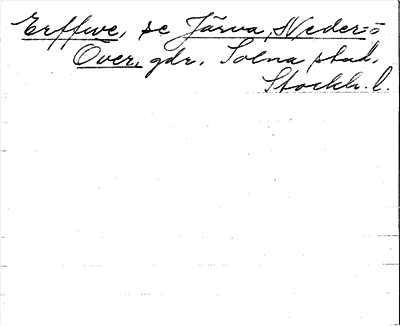 Erffwe, se Järva, Neder- o
Över, gdr. Solna stad,
Stockh. l.